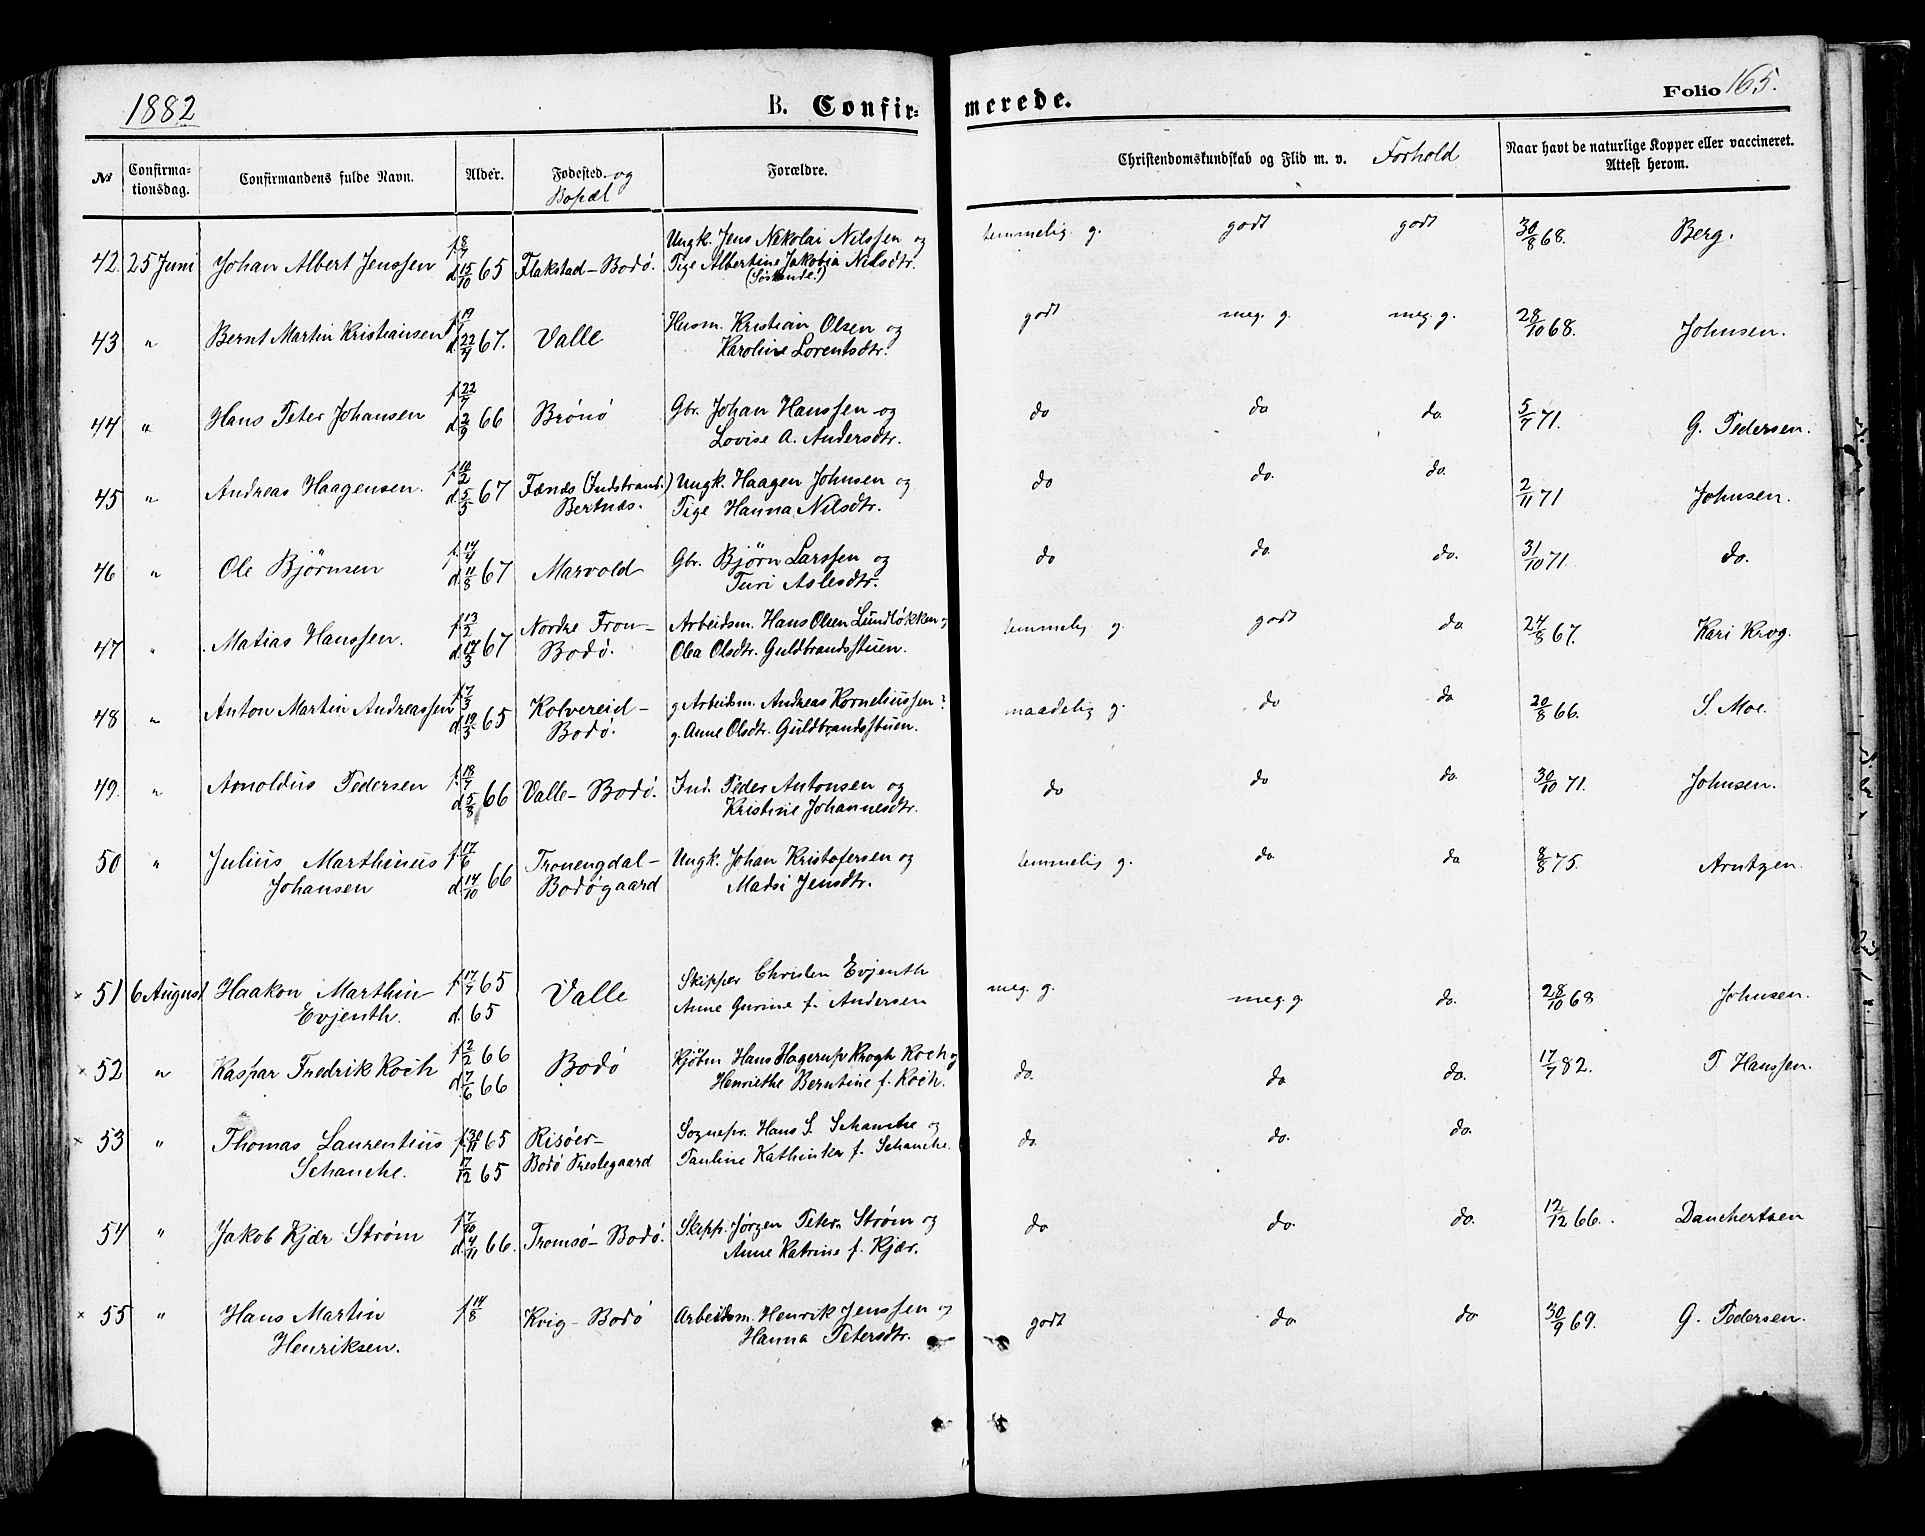 1882
B. Confirmerede.
Folio 165.
№ Confirmationsdag. Confirmandens fulde Navn. Alder. Fødested. og Bopæl Forældre. Christendomskundskab og Flid m. v. Forhold Naar havt de naturlige Kopper eller vaccineret. Attest herom.
42 25 Juni Johan Albert Jenssen f. 8/7 d. 15/10 65 Flakstad - Bodø. Ungk. Jens Nikolai Nilssen og temmelig g. godt godt 30/8 68. Berg.
Pige Albertine Jakobia Nilsdtr.
(Søskende!)
43 " Bernt Martin Kristiansen f. 19/1 d. 22/4 67. Valle Husm. Kristian Olsen og godt meg. g. meg. g. 28/10 68. Johnsen.
Karoline Lorentsdtr.
44 " Hans Peter Johansen f. 22/7 d. 2/9 66 Brönö Gbr. Johan Hanssen og do do do. 5/7 71. G. Pedersen.
Lovise A. Andersdtr.
45 " Andreas Haagensen. d. 5/5 67 Fænæs (Indstrand.) Ungk. Haagen Johnsen og do do. do. 2/11 71 Johnsen.
Bertnæs. Pige Hanna Nilsdtr.
46 " Ole Bjørnsen f. 14/4 d. 11/8 67 Marvold Gbr. Bjørn Larssen og do do. do. 31/10 71. do.
Turi Aslesdtr.
47 " Matias Hanssen. f. 13/2 d. 17/3 67 Nordre Fron - Arbeidsm. Hans Olsen Lundløkken og temmelig g. godt do. 24/8 67. Kari Krog.
Bodø. Olea Olsdtr. Guldbrandsstuen.
48 " Anton Martin Andreassen f. 7/3 d. 19/3 65 Kolvereid - g. Arbeidsm. Andreas Korneliussen? maadelig g. do do 20/8 66. S. Moe.
Bodø. g. Anne Olsdtr. Guldbrandsstuen.
49. " Arnoldus Pedersen f. 18/7 d. 5/8 66 Valle - Bodø. Ind. Peder Antonsen og do do do. 30/10 71. Johnsen.
Kristine Johannesdtr.
50 " Julius Marthinus f. 17/6 Tronengdal - Ungk. Johan Kristofersen og temmelig g. do do 8/8 75. Arntzen.
Johansen d. 14/10 66 Bodøgaard Madsi Jensdtr.
× 51 6 August Haakon Marthin f. 17/7 65 Valle Skipper Christen Evjenth meg. g. meg. g. do. 28/10 68 Johnsen.
Evjenth. d. 65 Anne Gurine f. Andersen
× 52 " Kaspar Fredrik Koch f. 2/2 66 Bodø Kjøbm Hans Hagerup Krogh Koch og do. do do. 17/7 82. P. Hanssen.
d. 7/6 66 Henriethe Berntine f. Koch.
× 53 " Thomas Laurentius f. 30/11 65 Risøer - Sognepr. Hans S. Schanche og do do. do.
Schanche. 17/12 65 Bodø Prestegaard Pauline Kathinka f. Schanche.
54 " Jakob Kjær Strøm f. 7/10 d. 4/11 66. Tromsø - Bodø. Skipp. Jørgen Peter Strøm og do do. do. 12/12 66. Danchertsen
Anne Katrine f. Kjær.
× 55 " Hans Martin f. 14/8 Kvig - Bodø Arbeidsm. Henrik Jenssen og godt do. do 30/9 69. G. Pedersen.
Henriksen. Hanna Petersdtr.